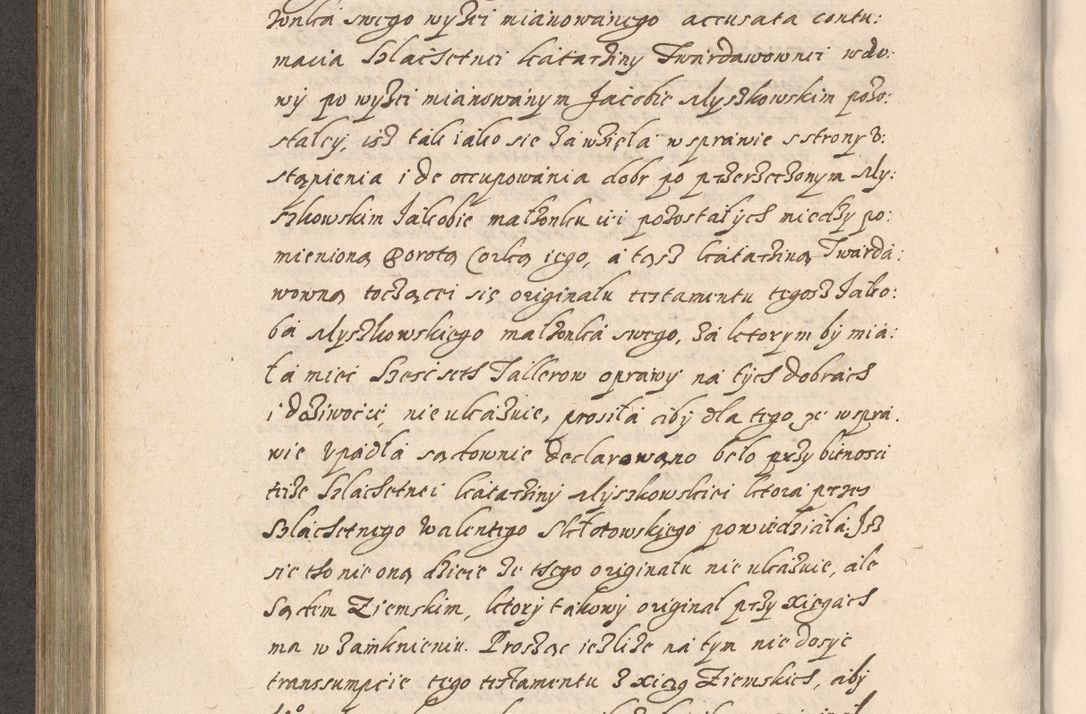 żonka swego wyżei mianowanego accusata contu:
macia Szlachetnei Katarżiny Twardawownei wdo:
wy po wyżei mianowanym Jacobie Myszkowskim pozo:
stałey, isz tak iako się zawzięła w sprawie s strony
stąpienia i de occupowania dobr po przerzeczonym My:
szkowskim Jakobie małżonku iei pozostałych między po:
mienioną Dorotą Corką iego, a tąsz Katarziną Twarda:
wowną toczącei się originału testamentu tegosz Jako:
ba Myszkowskiego małżonka swego, za ktorym by mia:
ła miei Szescseth Tallerow oprawy na tych dobrach
i dożiwocie, nie ukazuie, prosiła aby dla tego ze w spra.
wie upadła sądownie declarowano beło przy bitnosci
teize Szlachetnei Katarziny Myszkowskiei ktora przes
Szlachetnego Walentego Skłotowskiego powiedziała: Isz
się tho nie oną dzieie że thego originału nie ukazuie, ale
Sądem Ziemskim, ktory takowy original przy xięgach
ma w zamknieniu. Prosząc iezlize na tym nie dosyc
transsumpcie tego testamentu z xiąg Ziemskich, aby